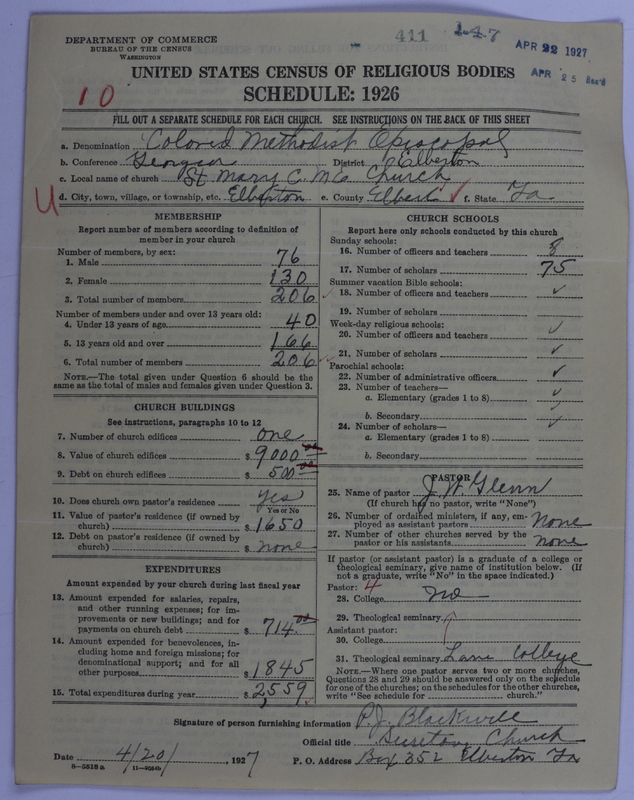 DEPARTMENT OF COMMERCE
BUREAU OF THE CENSUS
WASHINGTON
411
147
APR 22 1927
APR 25
UNITED STATES CENSUS OF RELIGIOUS BODIES
SCHEDULE: 1926
10
FILL OUT A SEPARATE SCHEDULE FOR EACH CHURCH. SEE INSTRUCTIONS ON THE BACK OF THIS SHEET
a. Denomination Colored Methodist Episcopal
b. Conference Georgia District Elberton
c. Local name of church St Mary C. M. E. Church
d. City, town, village, or township, etc. Elberton e. County Elbert f. State Ga
MEMBERSHIP
Report number of members according to definition of
member in your church
Number of members, by sex:
1. Male 76
2. Female 130
3. Total number of members 206
Number of members under and over 13 years old:
4. Under 13 years of age 40
5. 13 years old and over 166
6. Total number of members 206
NOTE.—The total given under Question 6 should be the
same as the total of males and females given under Question 3.
CHURCH BUILDINGS
See instructions, paragraphs 10 to 12
7. Number of church edifices one
8. Value of church edifices $ 9000 00
9. Debt on church edifices $ 500 00
10. Does church own pastor's residence yes
Yes or No
11. Value of pastor's residence (if owned by
church) $ 1650
12. Debt on pastor's residence (if owned by
church) $ none
EXPENDITURES
Amount expended by your church during last fiscal year
13. Amount expended for salaries, repairs,
and other running expenses; for im-
provements or new buildings; and for
payments on church debt $ 714 00
14. Amount expended for benevolences, in-
cluding home and foreign missions; for
denominational support; and for all
other purposes $ 1845
15. Total expenditures during year $ 2,559
CHURCH SCHOOLS
Report here only schools conducted by this church
Sunday schools:
16. Number of officers and teachers 8
17. Number of scholars 75
Summer vacation Bible schools:
18. Number of officers and teachers
19. Number of scholars
Week-day religious schools:
20. Number of officers and teachers
21. Number of scholars
Parochial schools:
22. Number of administrative officers
23. Number of teachers—
a. Elementary (grades 1 to 8)
b. Secondary
24. Number of scholars—
a. Elementary (grades 1 to 8)
b. Secondary
PASTOR
25. Name of pastor J. W. Glenn
(If church has no pastor, write "None")
26. Number of ordained ministers, if any, em-
ployed as assistant pastors None
27. Number of other churches served by the
pastor or his assistants none
If pastor (or assistant pastor) is a graduate of a college or
theological seminary, give name of institution below. (If
not a graduate, write "No" in the space indicated.)
Pastor: 4
28. College no
29. Theological seminary
Assistant pastor:
30. College
31. Theological seminary Lane College
NOTE.—Where one pastor serves two or more churches,
Questions 28 and 29 should be answered only on the schedule
for one of the churches; on the schedules for the other churches,
write "See schedule for church."
Signature of person furnishing information P. J. Blackwell
Official title Secretary Church
Date 4/20/ 1927 P. O. Address Box 352 Elberton Ga
8—5518 a 11—9054b